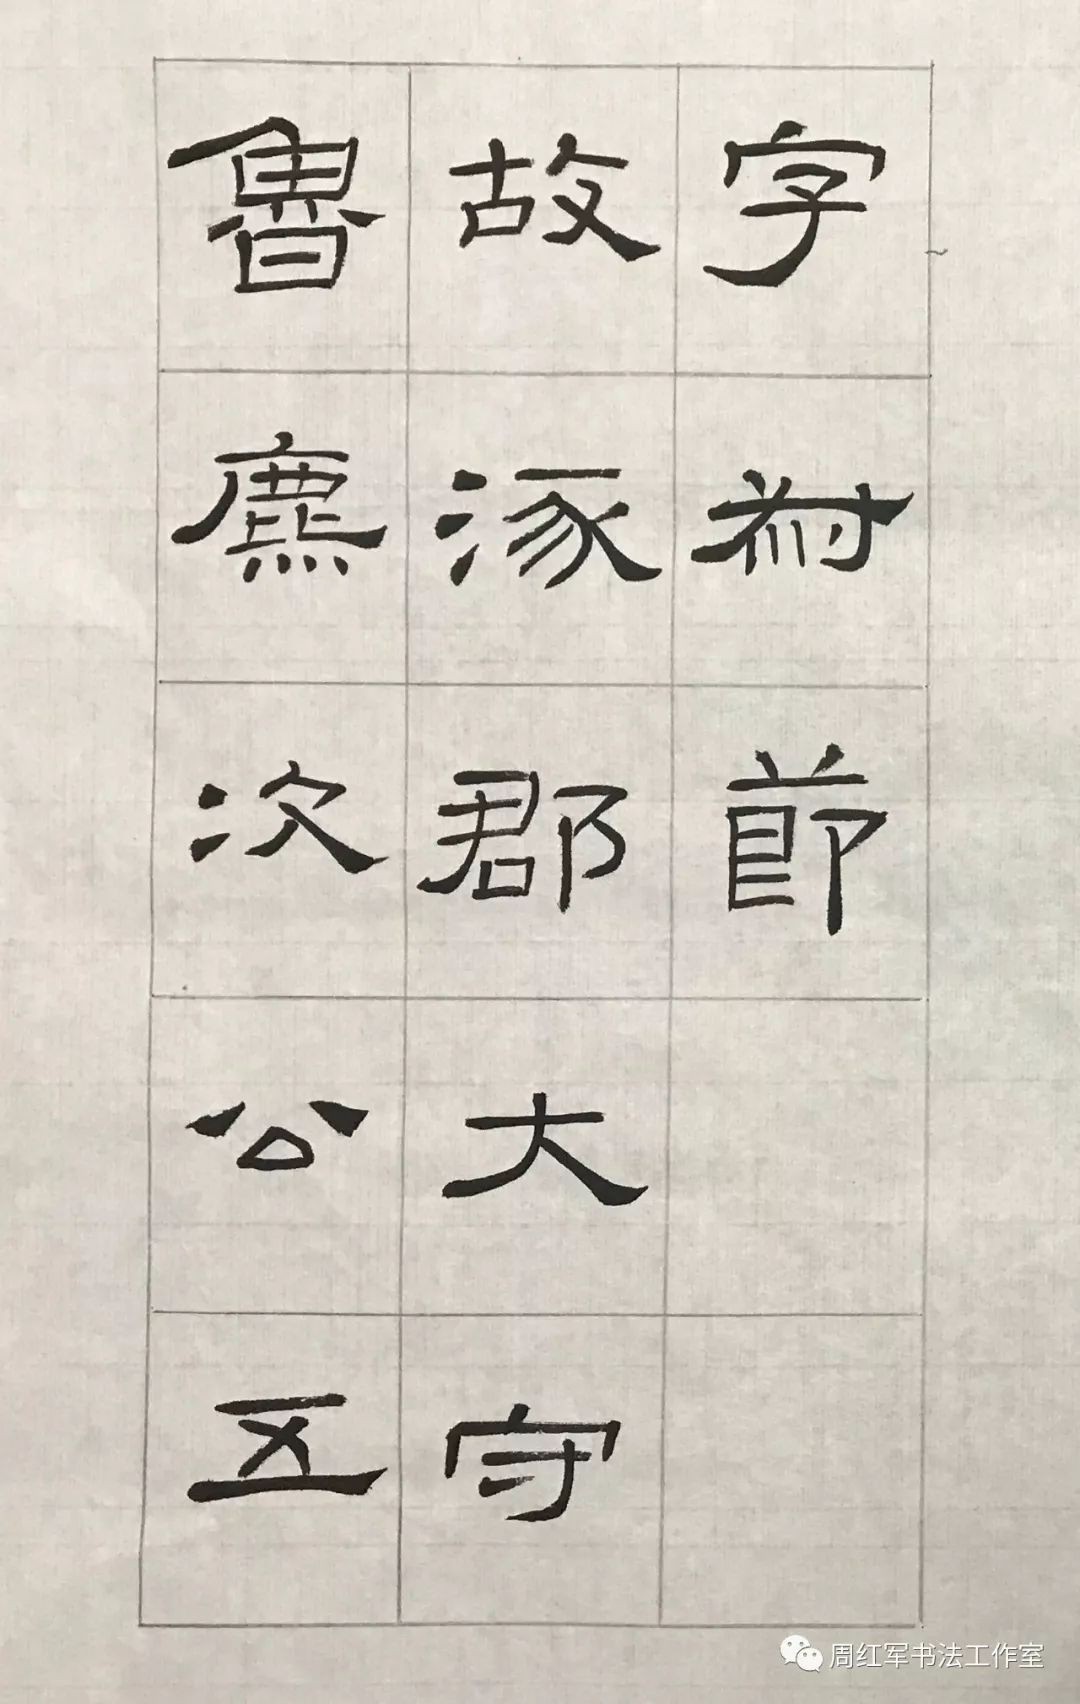 字叔節
故涿郡大守
魯麃次公五
周红军书法工作室